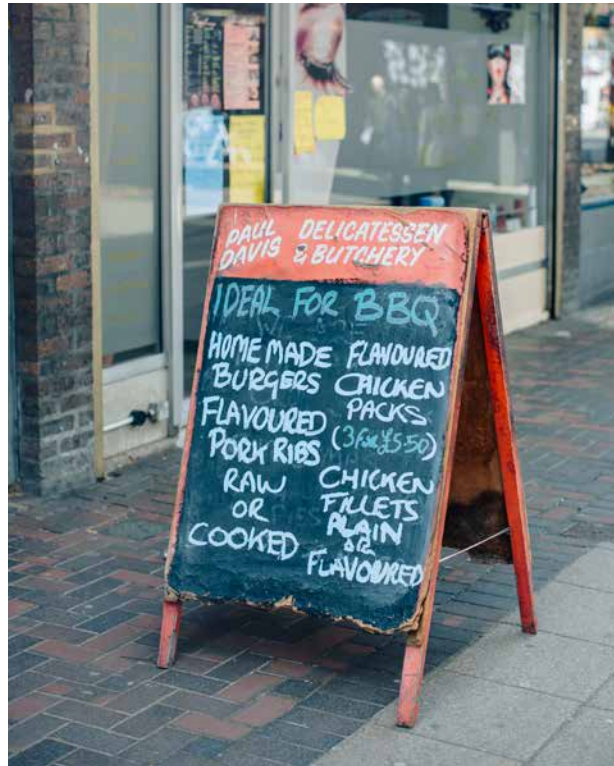 PAUL DAVIS
DELICATESSEN & BUTCHERY
IDEAL FOR BBQ
HOME MADE
BURGERS
FLAVOURED
PORK RIBS
RAW
OR
COOKED
FLAVOURED
CHICKEN
PACKS
(3 FOR £5.50)
CHICKEN
FILLETS
PLAIN
OR
FLAVOURED